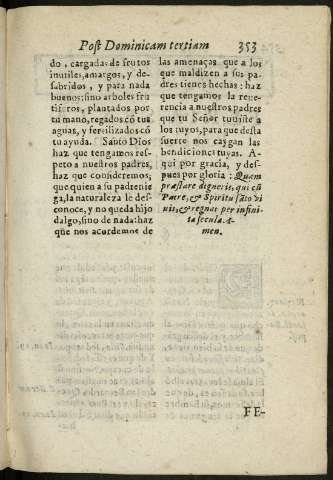 Post Dominicam tertiam 353
do, cargadas de frutos
inutiles, amargos, y de-
sabridos, y para nada
buenos: sino arboles fru
tiferos, plantados por
tu mano, regados cõ tus
aguas, y fertilizados cõ
tu ayuda. Santo Dios
haz que tengamos res-
peto a nuestros padres,
haz que consideremos,
que quien a su padre nie
ga, la naturaleza le des-
conoce, y no queda hijo
dalgo, sino de nada: haz
que nos acordemos de
las amenaças que a los
que maldizen a sus pa-
dres tienes hechas: haz
que tengamos la reue-
rencia a nuestros padres
que tu Señor tuuiste a
los tuyos, para que desta
suerte nos caygan las
bendiciones tuyas. A-
qui por gracia, y des-
pues por gloria: Quam
præstare digneris, qui cũ
Patre, & Spiritu sãto vi
uis, & regnas per infini
ta secula. A-
men.
FE-